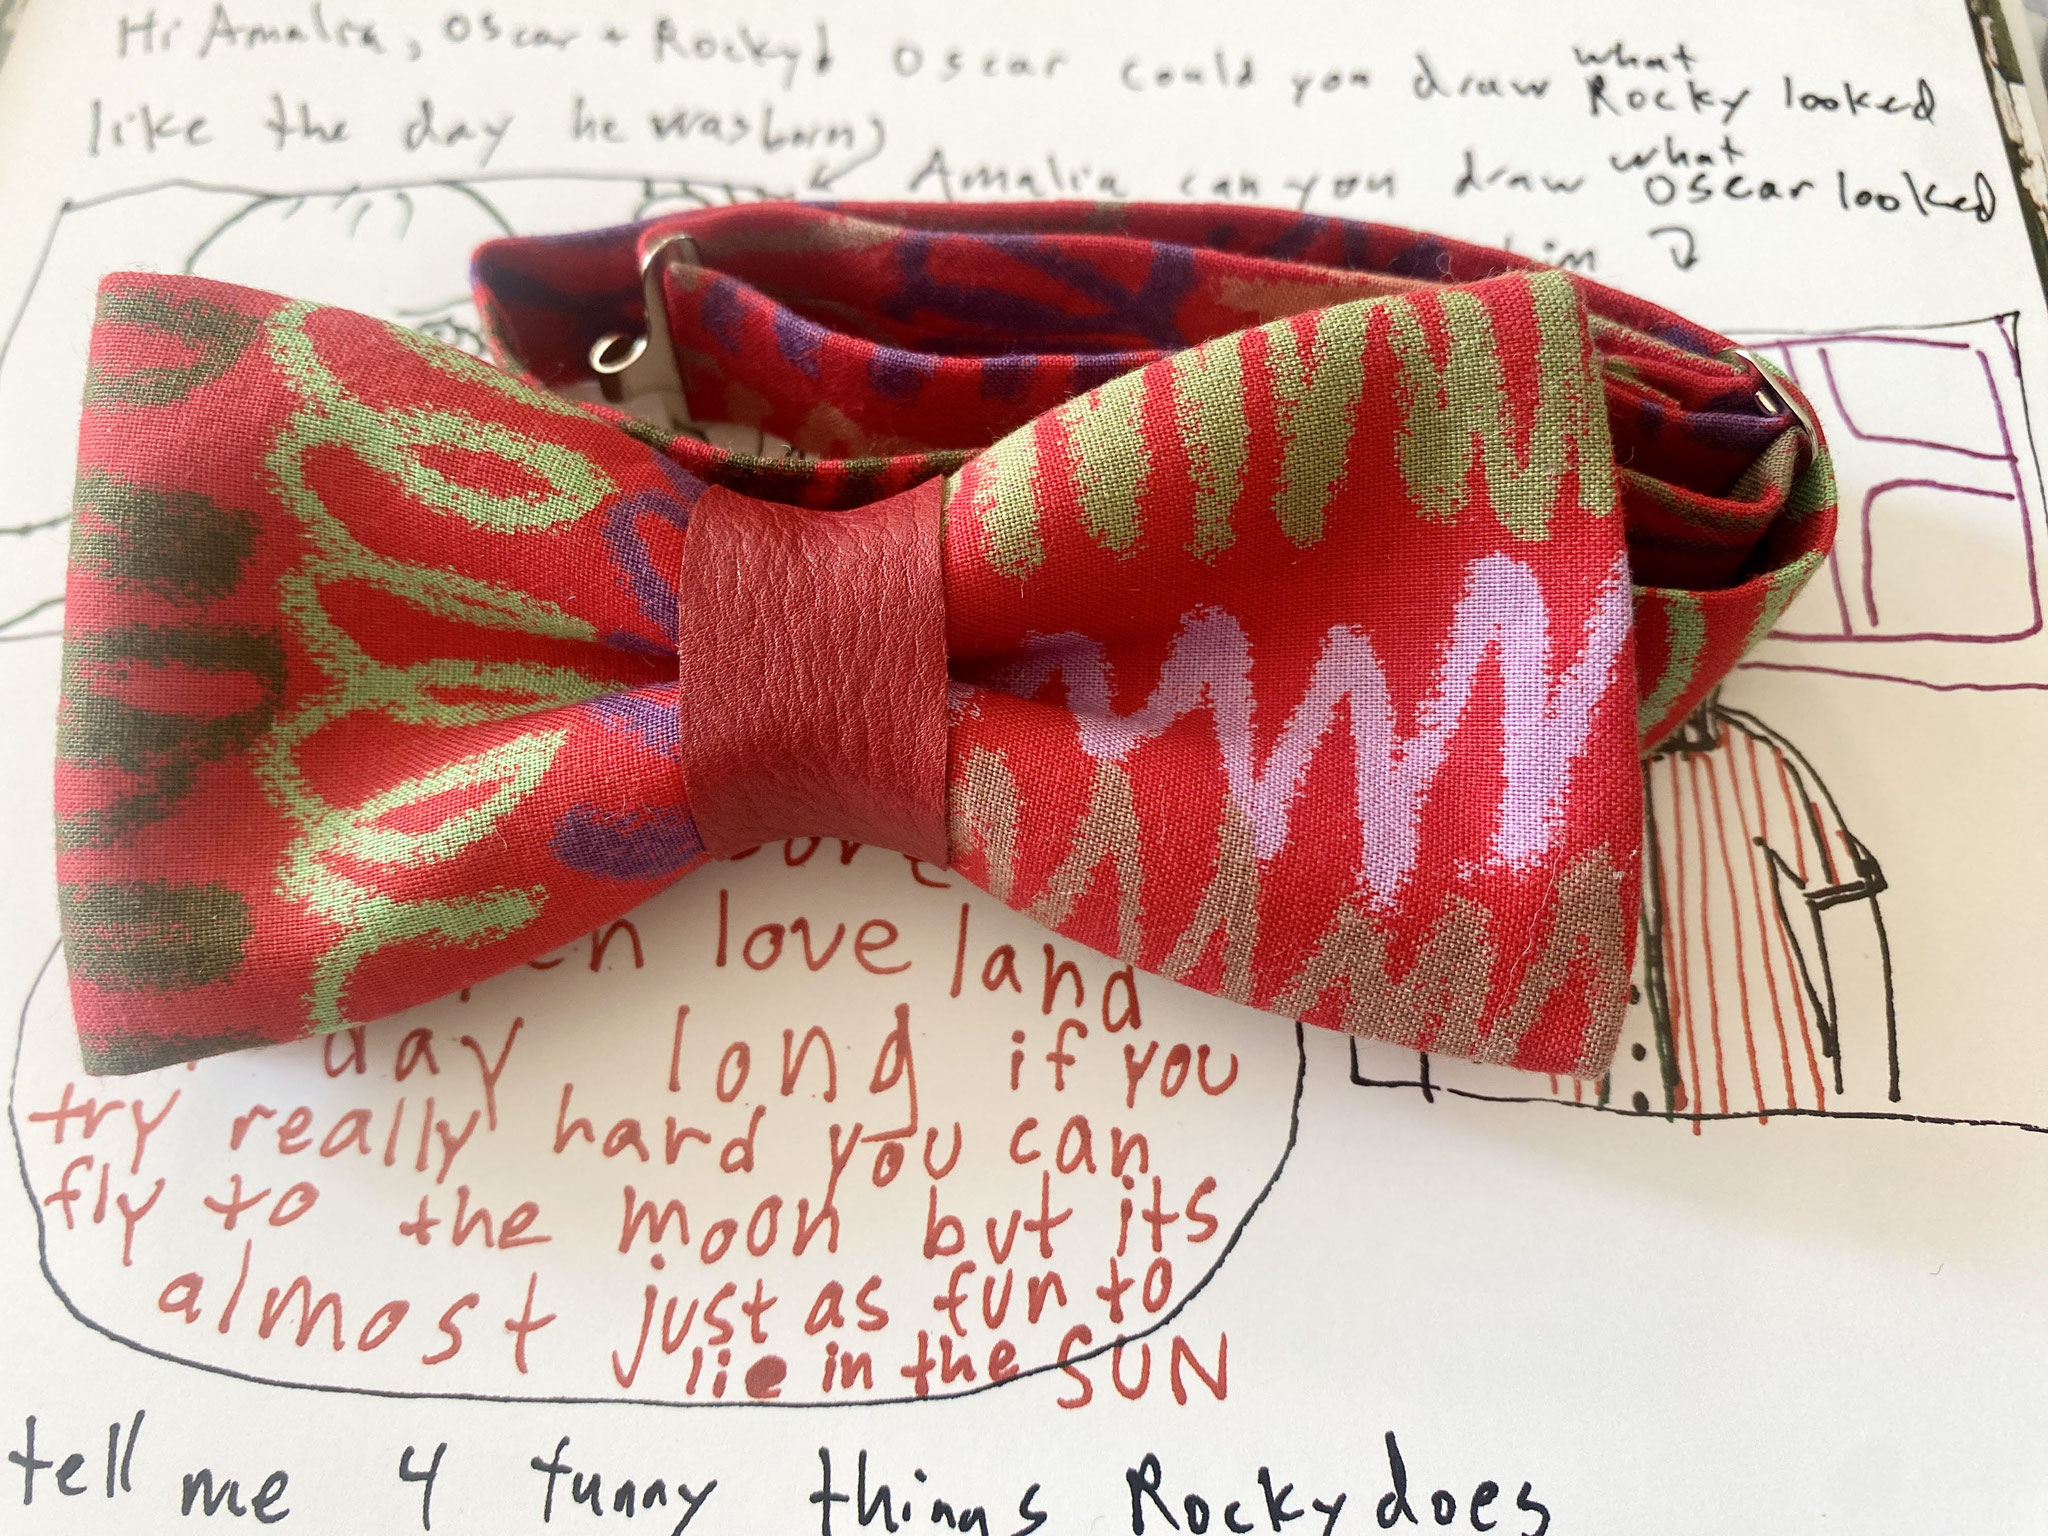 Hi Amalia, Oscar + Rocky! Oscar could you draw what Rocky looked
like the day he was born?
Amalia can you draw what Oscar looked
love land
day long if you
try really hard you can
fly to the moon but its
almost just as fun to
lie in the SUN
tell me 4 funny things Rocky does